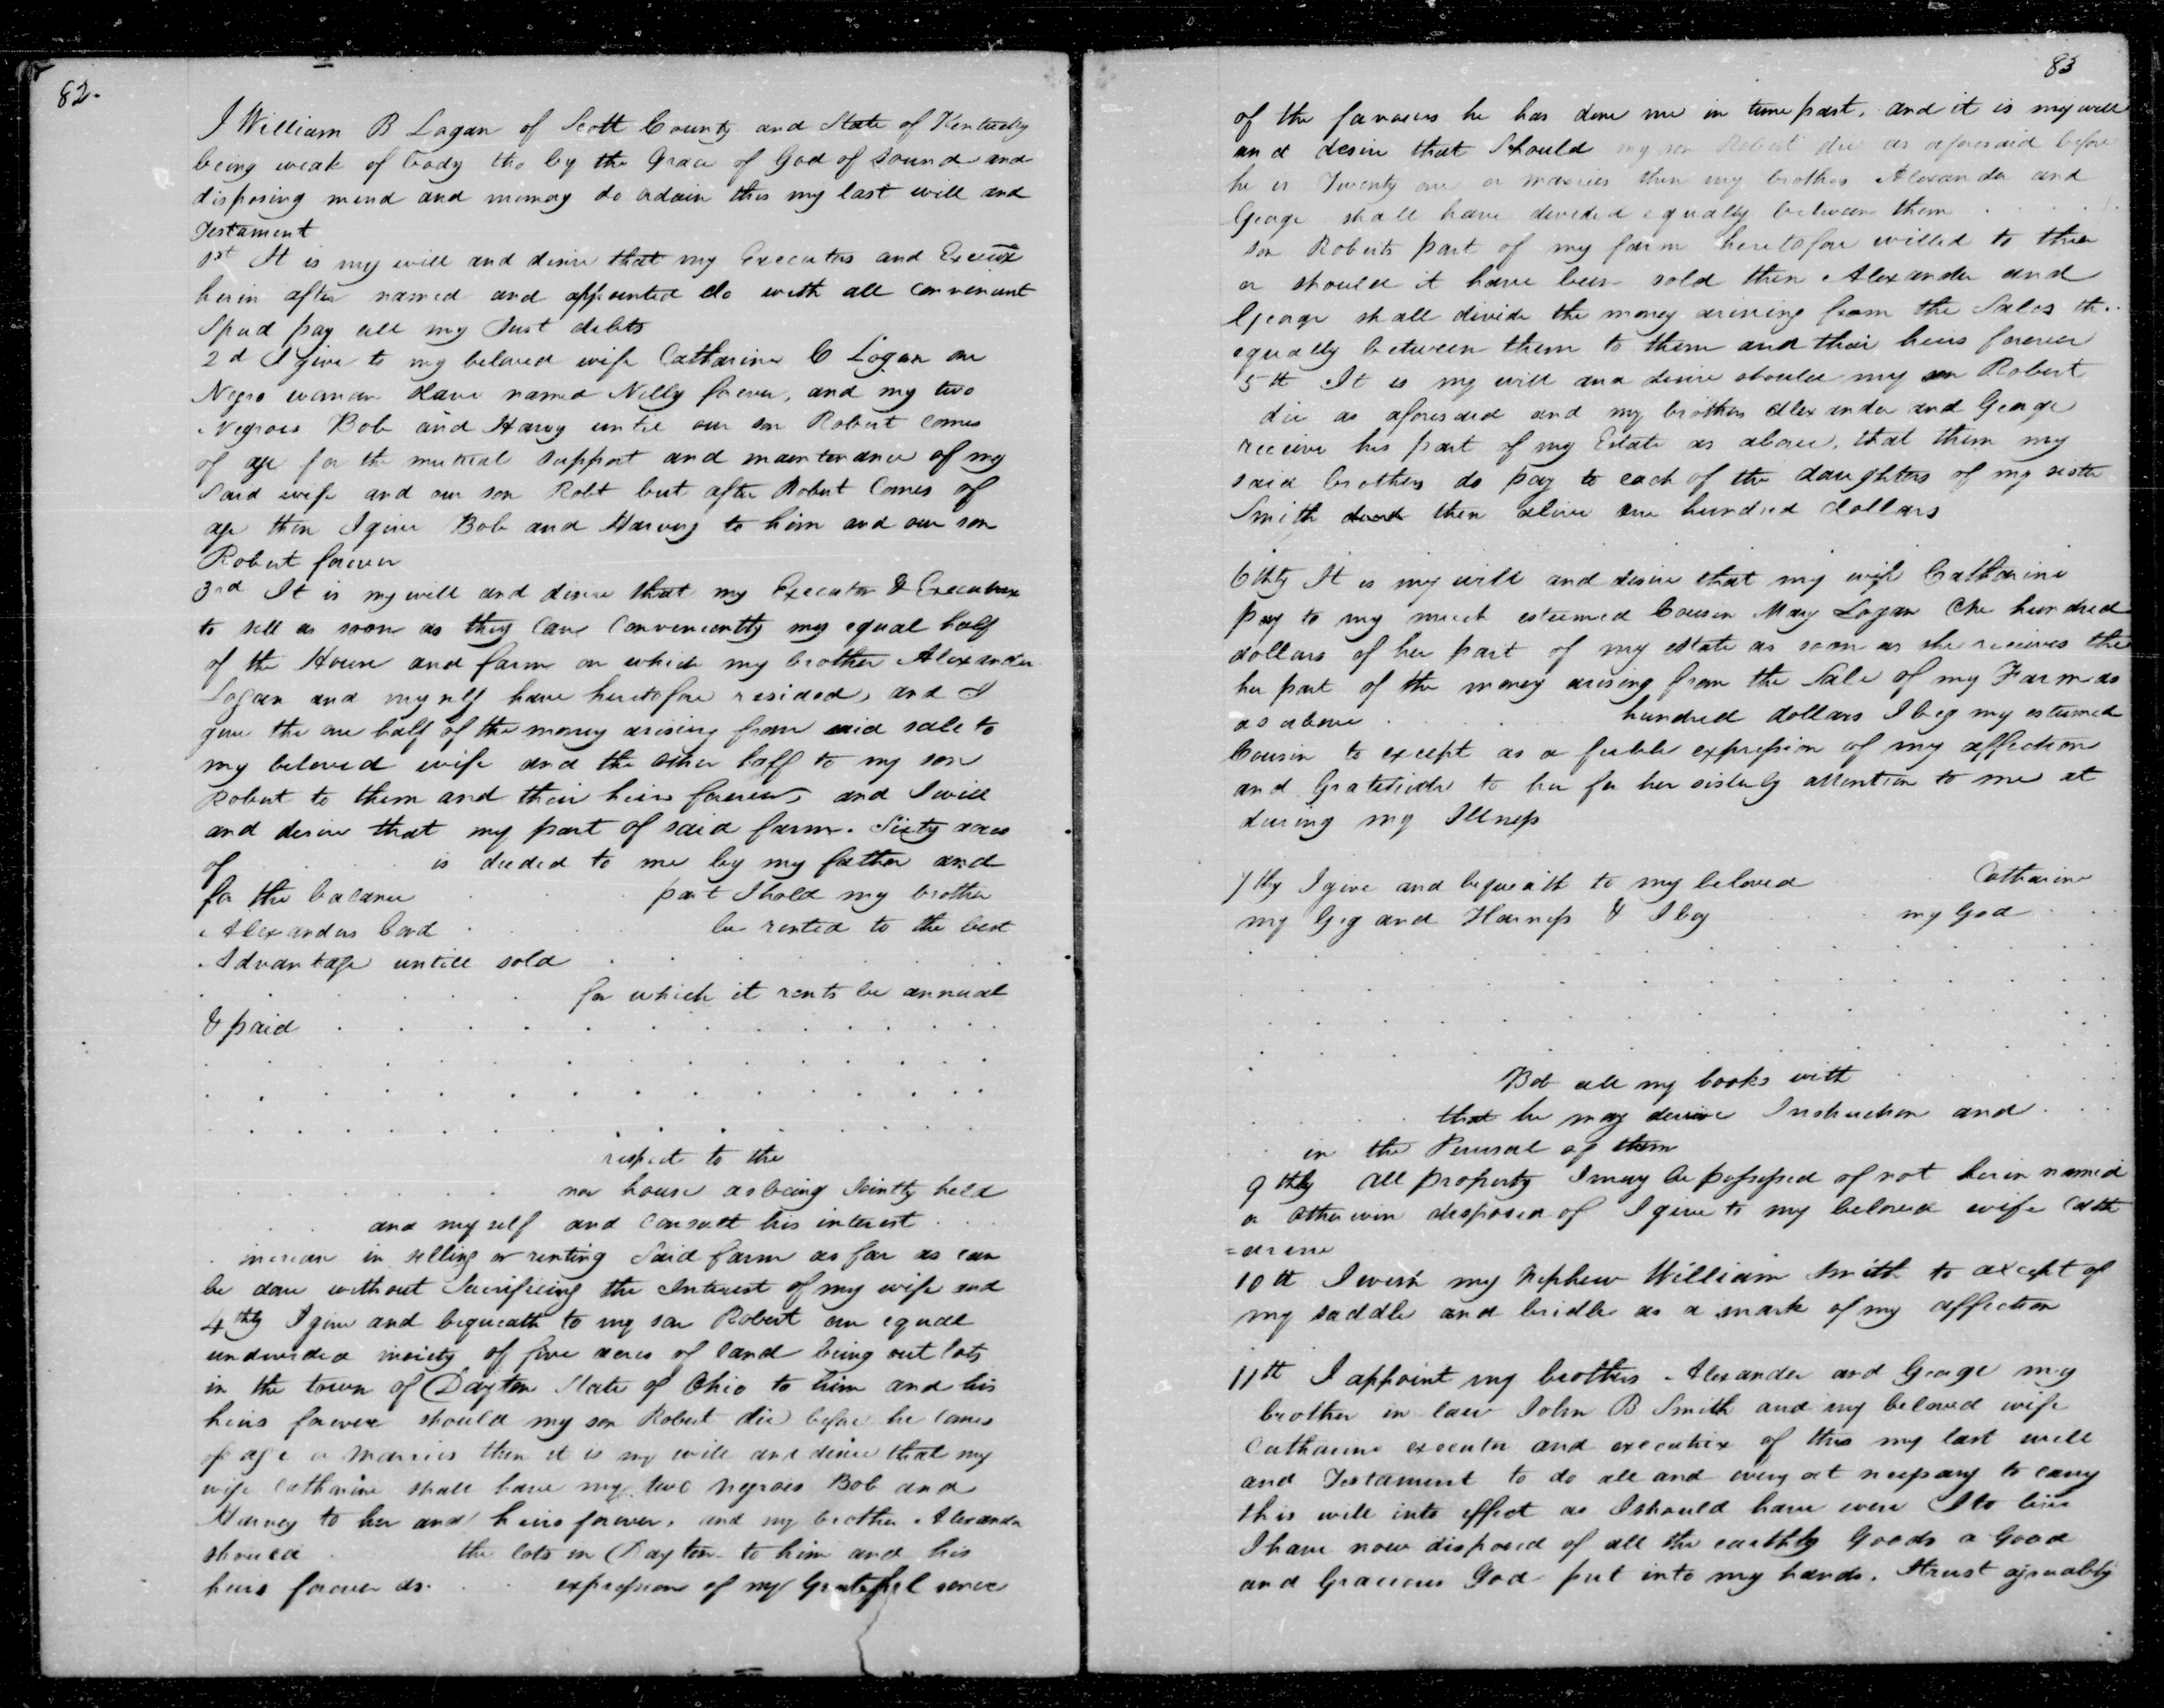 82.
I William B Logan of Scott County and State of Kentucky
being weak of body tho by the Grace of God of sound and
disposing mind and memory do ordain this my last will and
Testament
1st It is my will and desire that my Executors and Executx
herin after named and appointed do with all convenient
Speed pay all my Just debts
2d I give to my beloved wife Catharine C Logan one
Negro woman slave named Nelly forever, and my two
Negroes Bob and Harvy until our son Robert comes
of age for the mutual support and maintenance of my
said wife and our son Robt but after Robert Comes of
age then I give Bob and Harvey to him and our son
Robert forever
3rd It is my will and desire that my Executor & Executrix
to sell as soon as they can Conveniently my equal half
of the House and farm on which my brother Alexander
Logan and myself have heretofore resided, and I
give the one half of the money arising from said sale to
my beloved wife and the other half to my son
Robert to them and their heirs forever, and I will
and desire that my part of said farm. Sixty acres
of . . . is deeded to me by my father and
for the balance . . . part I hold my brother
Alexanders bond . . . be rented to the best
Advantage untill sold . . . . . . .
. . . . . . for which it rents be annual
& paid . . . . . . . . . . .
. . . . . . . . . . . . .
. . . . . . . . . . . . .
. . . . . . . . . . . . .
respect to the
. . . . . . new house as being Jointly held
. . and my self and consult his interest . . .
. increase in selling or renting said farm as far as can
be done without Sacrificing the Interest of my wife and
4thly I give and bequeath to my son Robert an equal
undivided moiety of five acres of land being out lots
in the town of Dayton State of Ohio to him and his
heirs forever should my son Robert die before he comes
of age or marries then it is my will and desire that my
wife Catharine shall have my two negroes Bob and
Harvey to her and heirs forever, and my brother Alexander
should . . the lots in Dayton to him and his
heirs forever as . . . expression of my Grateful sence
83
of the favours he has done me in time past, and it is my will
and desire that Should my son Robert die as aforesaid before
he is Twenty one or marries then my brothers Alexander and
George shall have devided equally between them . . . . .
son Roberts part of my farm heretofore willed to
or should it have been sold then Alexander and
George shall divide the money arising from the Sales th..
equally between them to them and their heirs forever
5th It is my will and desire should my son Robert
die as aforesaid and my brothers Alexander and George
receive his part of my Estate as above, that them my
said brothers do pay to each of the daughters of my sister
Smith then alive one hundred dollars
6thly It is my will and desire that my wife Catharine
pay to my much esteemed Cousin Mary Logan One hundred
dollars of her part of my estate as soon as she receives the
her part of the money arising from the Sale of my Farm as
as above . . . hundred dollars I beg my esteemed
Cousin to except as a feeble expression of my affection
and Gratitude to her for her sisterly attention to me at
during my Illness
7thly I give and bequeath to my beloved . . Catharine
my Gig and Harness & I beg . . my God . .
. . . . . . . . . . . . .
. . . . . . . . . . . . .
. . . . . . . . . . . . .
. . . . . . . . . . . . .
Bob all my books with . . . .
. . . that he may derive Instruction and . . .
. . in the Perusal of them
9thly All property I may be possessed of not herin named
or otherwise disposed of I give to my beloved wife Cath
=arine
10th I wish my Nephew William Smith to except of
my saddle and bridle as a mark of my affection
11th I appoint my brothers Alexander and George my
brother in law John B Smith and my beloved wife
Catharine executor and executrix of this my last will
and Testament to do all and every act nessary to carry
this will into effect as I should have were I to live
I have now disposed of all the earthly Goods a Good
and Gracious God put into my hands. I trust